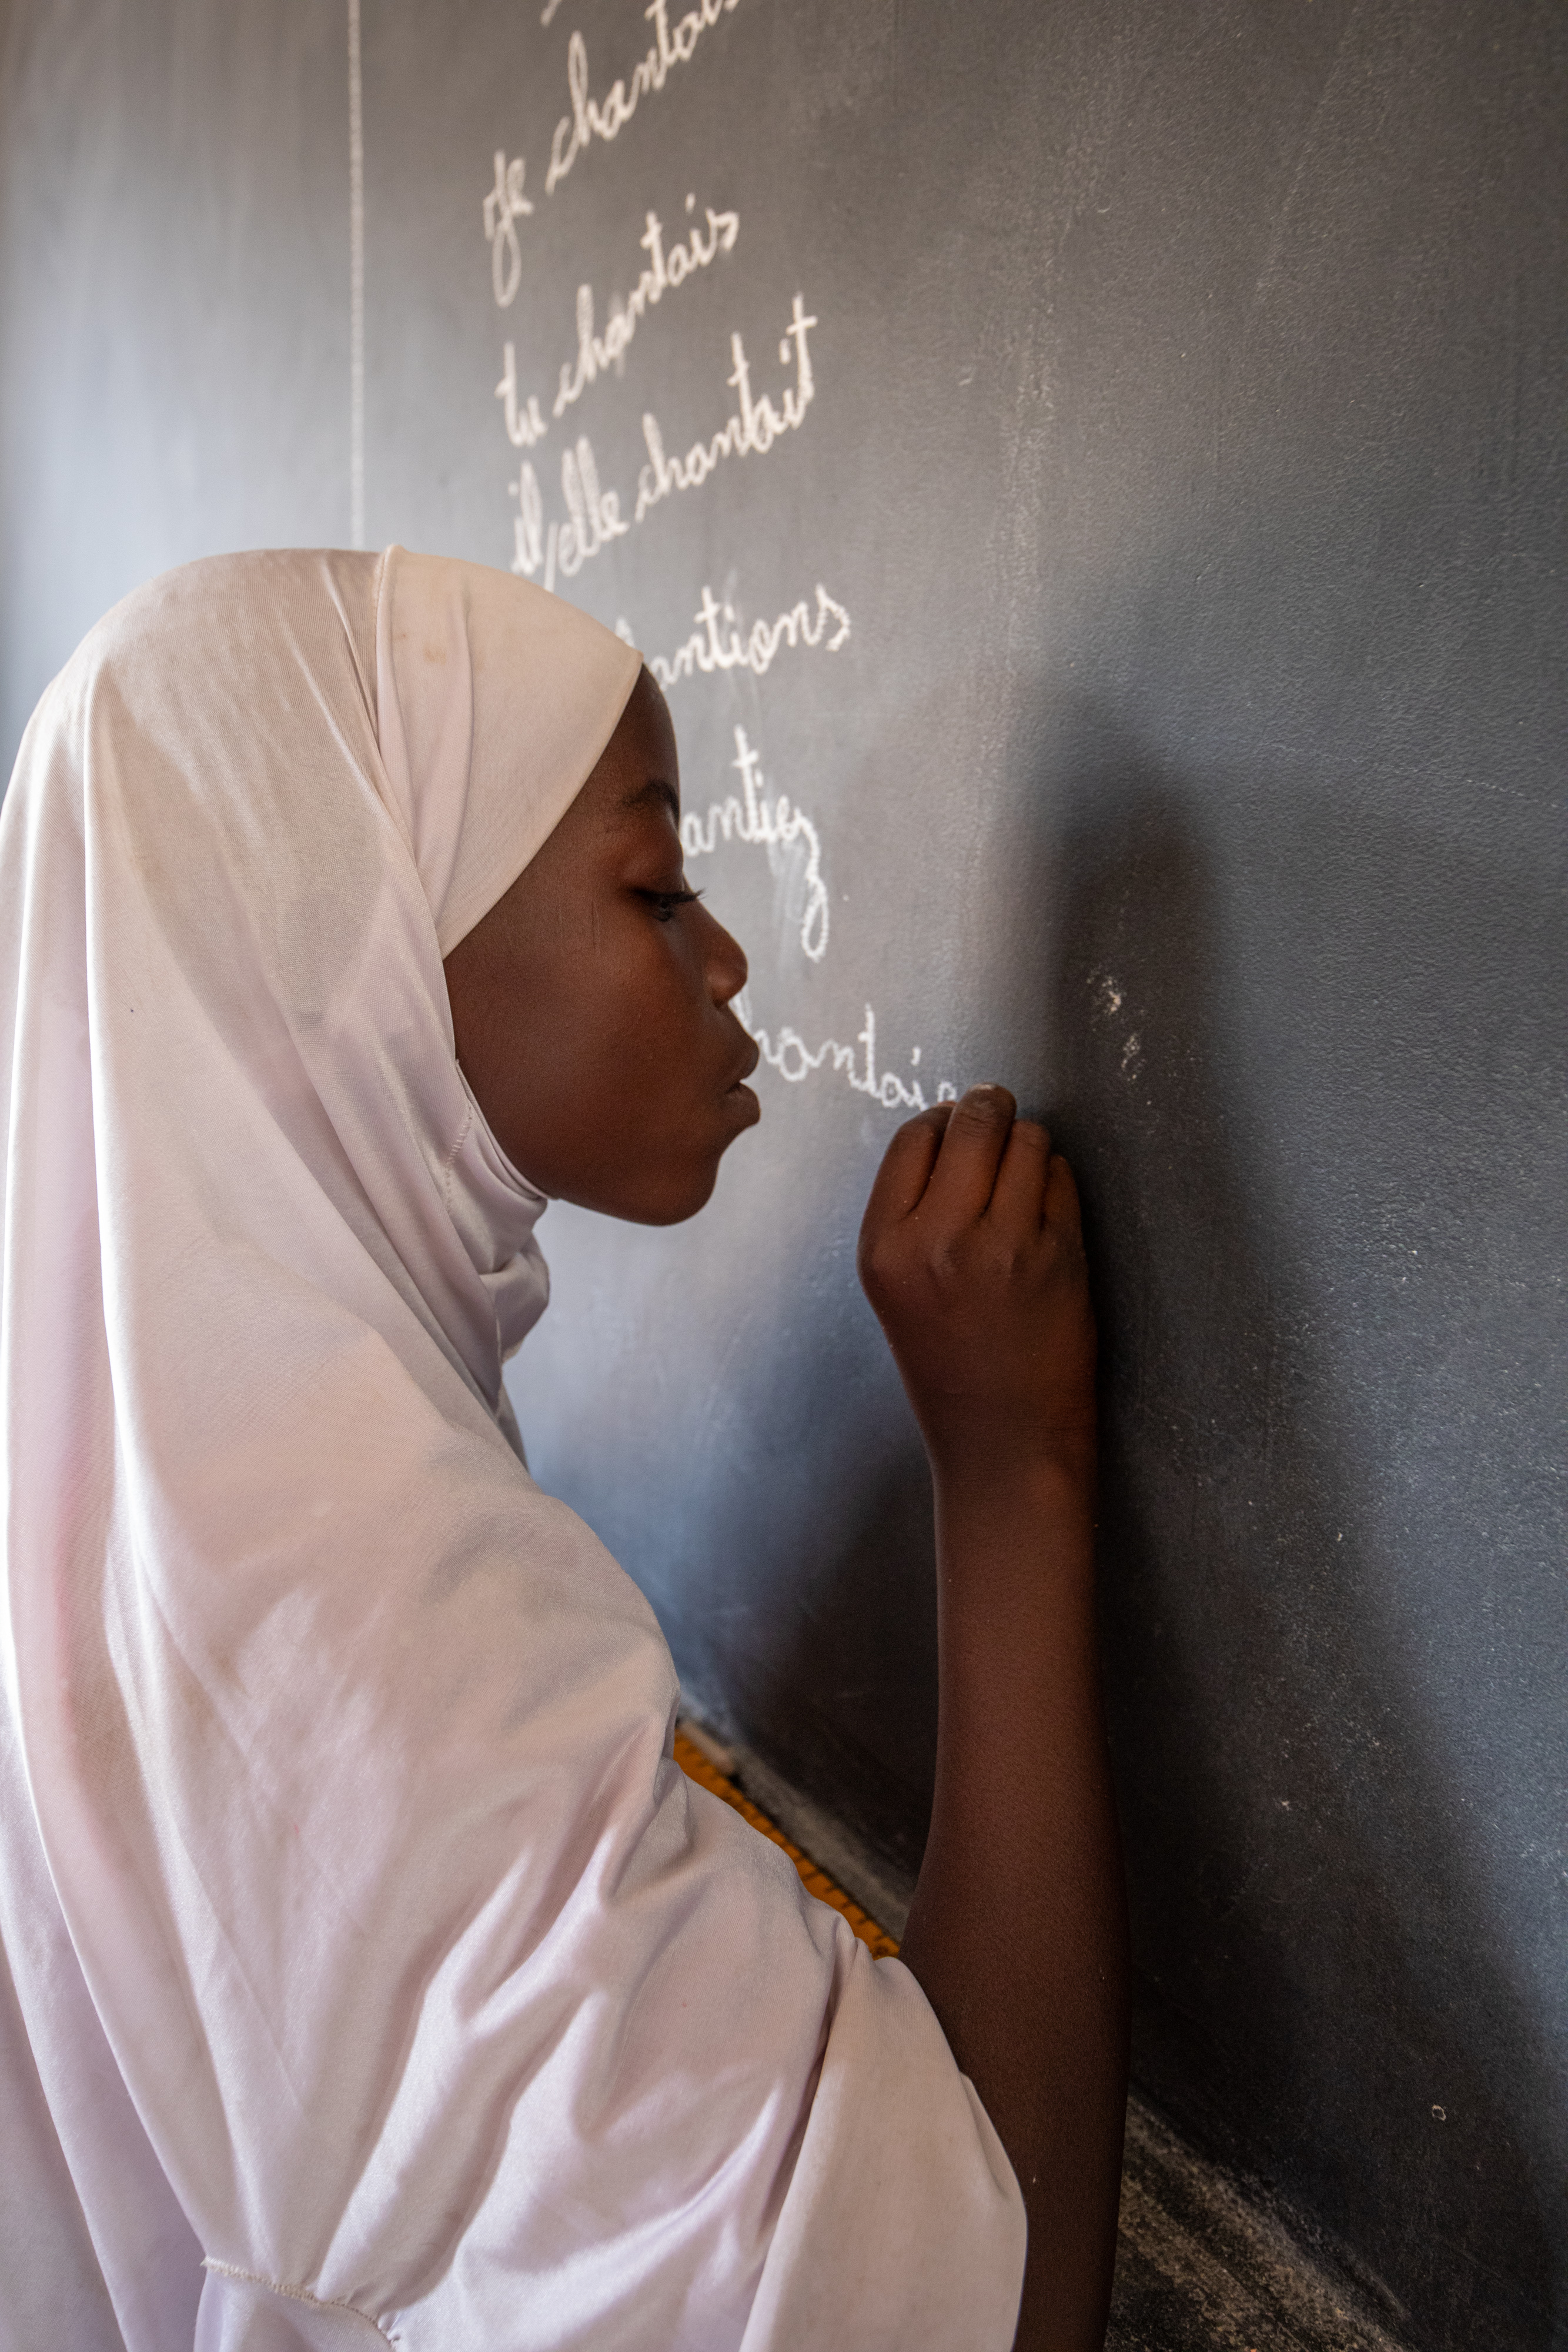 je chantais
tu chantais
il/elle chantait
antions
antiez
hantaie